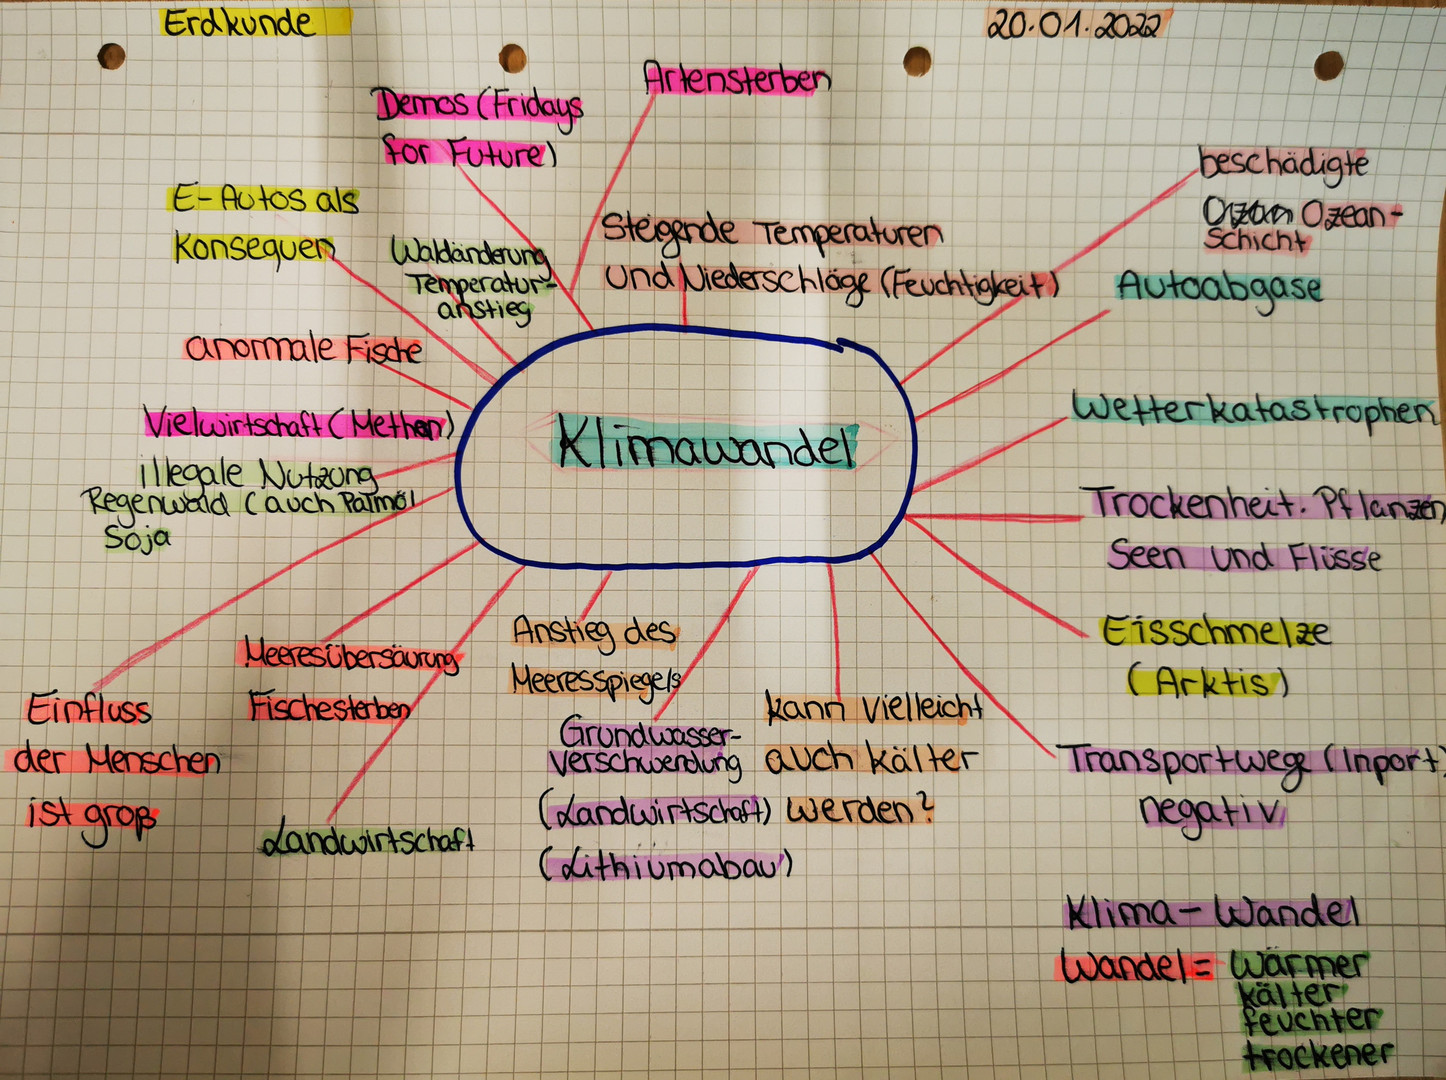 Erdkunde
20.01.2022
Artensterben
Demos (Fridays
for Future)
beschädigte
Ozean-
schicht
E-Autos als
Konsequen
Steigende Temperaturen
und Niederschläge (Feuchtigkeit)
Waldänderung
Temperatur-
anstieg
Autoabgase
anormale Fische
Wetterkatastrophen
Vielwirtschaft (Methan)
Klimawandel
illegale Nutzung
Regenwald (auch Palmöl
Soja
Trockenheit. Pflanzen
Seen und Flüsse
Eisschmelze
(Arktis)
Anstieg des
Meeresspiegels
Meeresübersäurung
Fischesterben
Einfluss
der Menschen
ist groß
kann vielleicht
auch kälter
werden?
Grundwasser-
verschwendung
(Landwirtschaft)
(Lithiumabau)
Transportwege (Inport)
negativ
Landwirtschaft
Klima-Wandel
Wandel = wärmer
kälter
feuchter
trockener